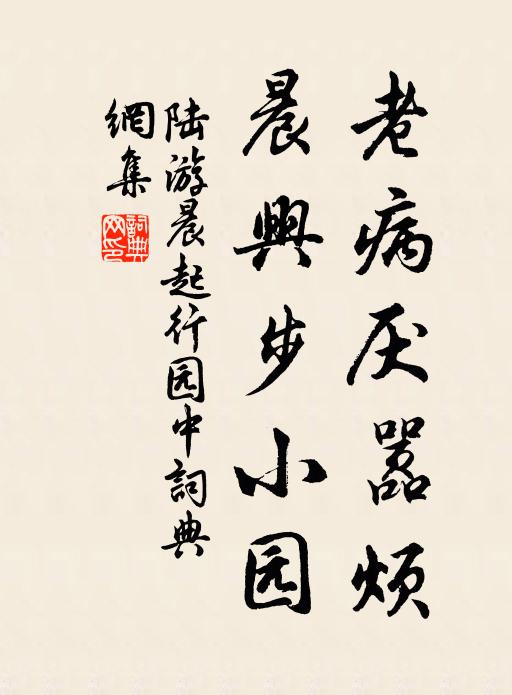 老病厌嚣烦
晨興步小园
陆游晨起行园中詞典
網集
詞典
网印